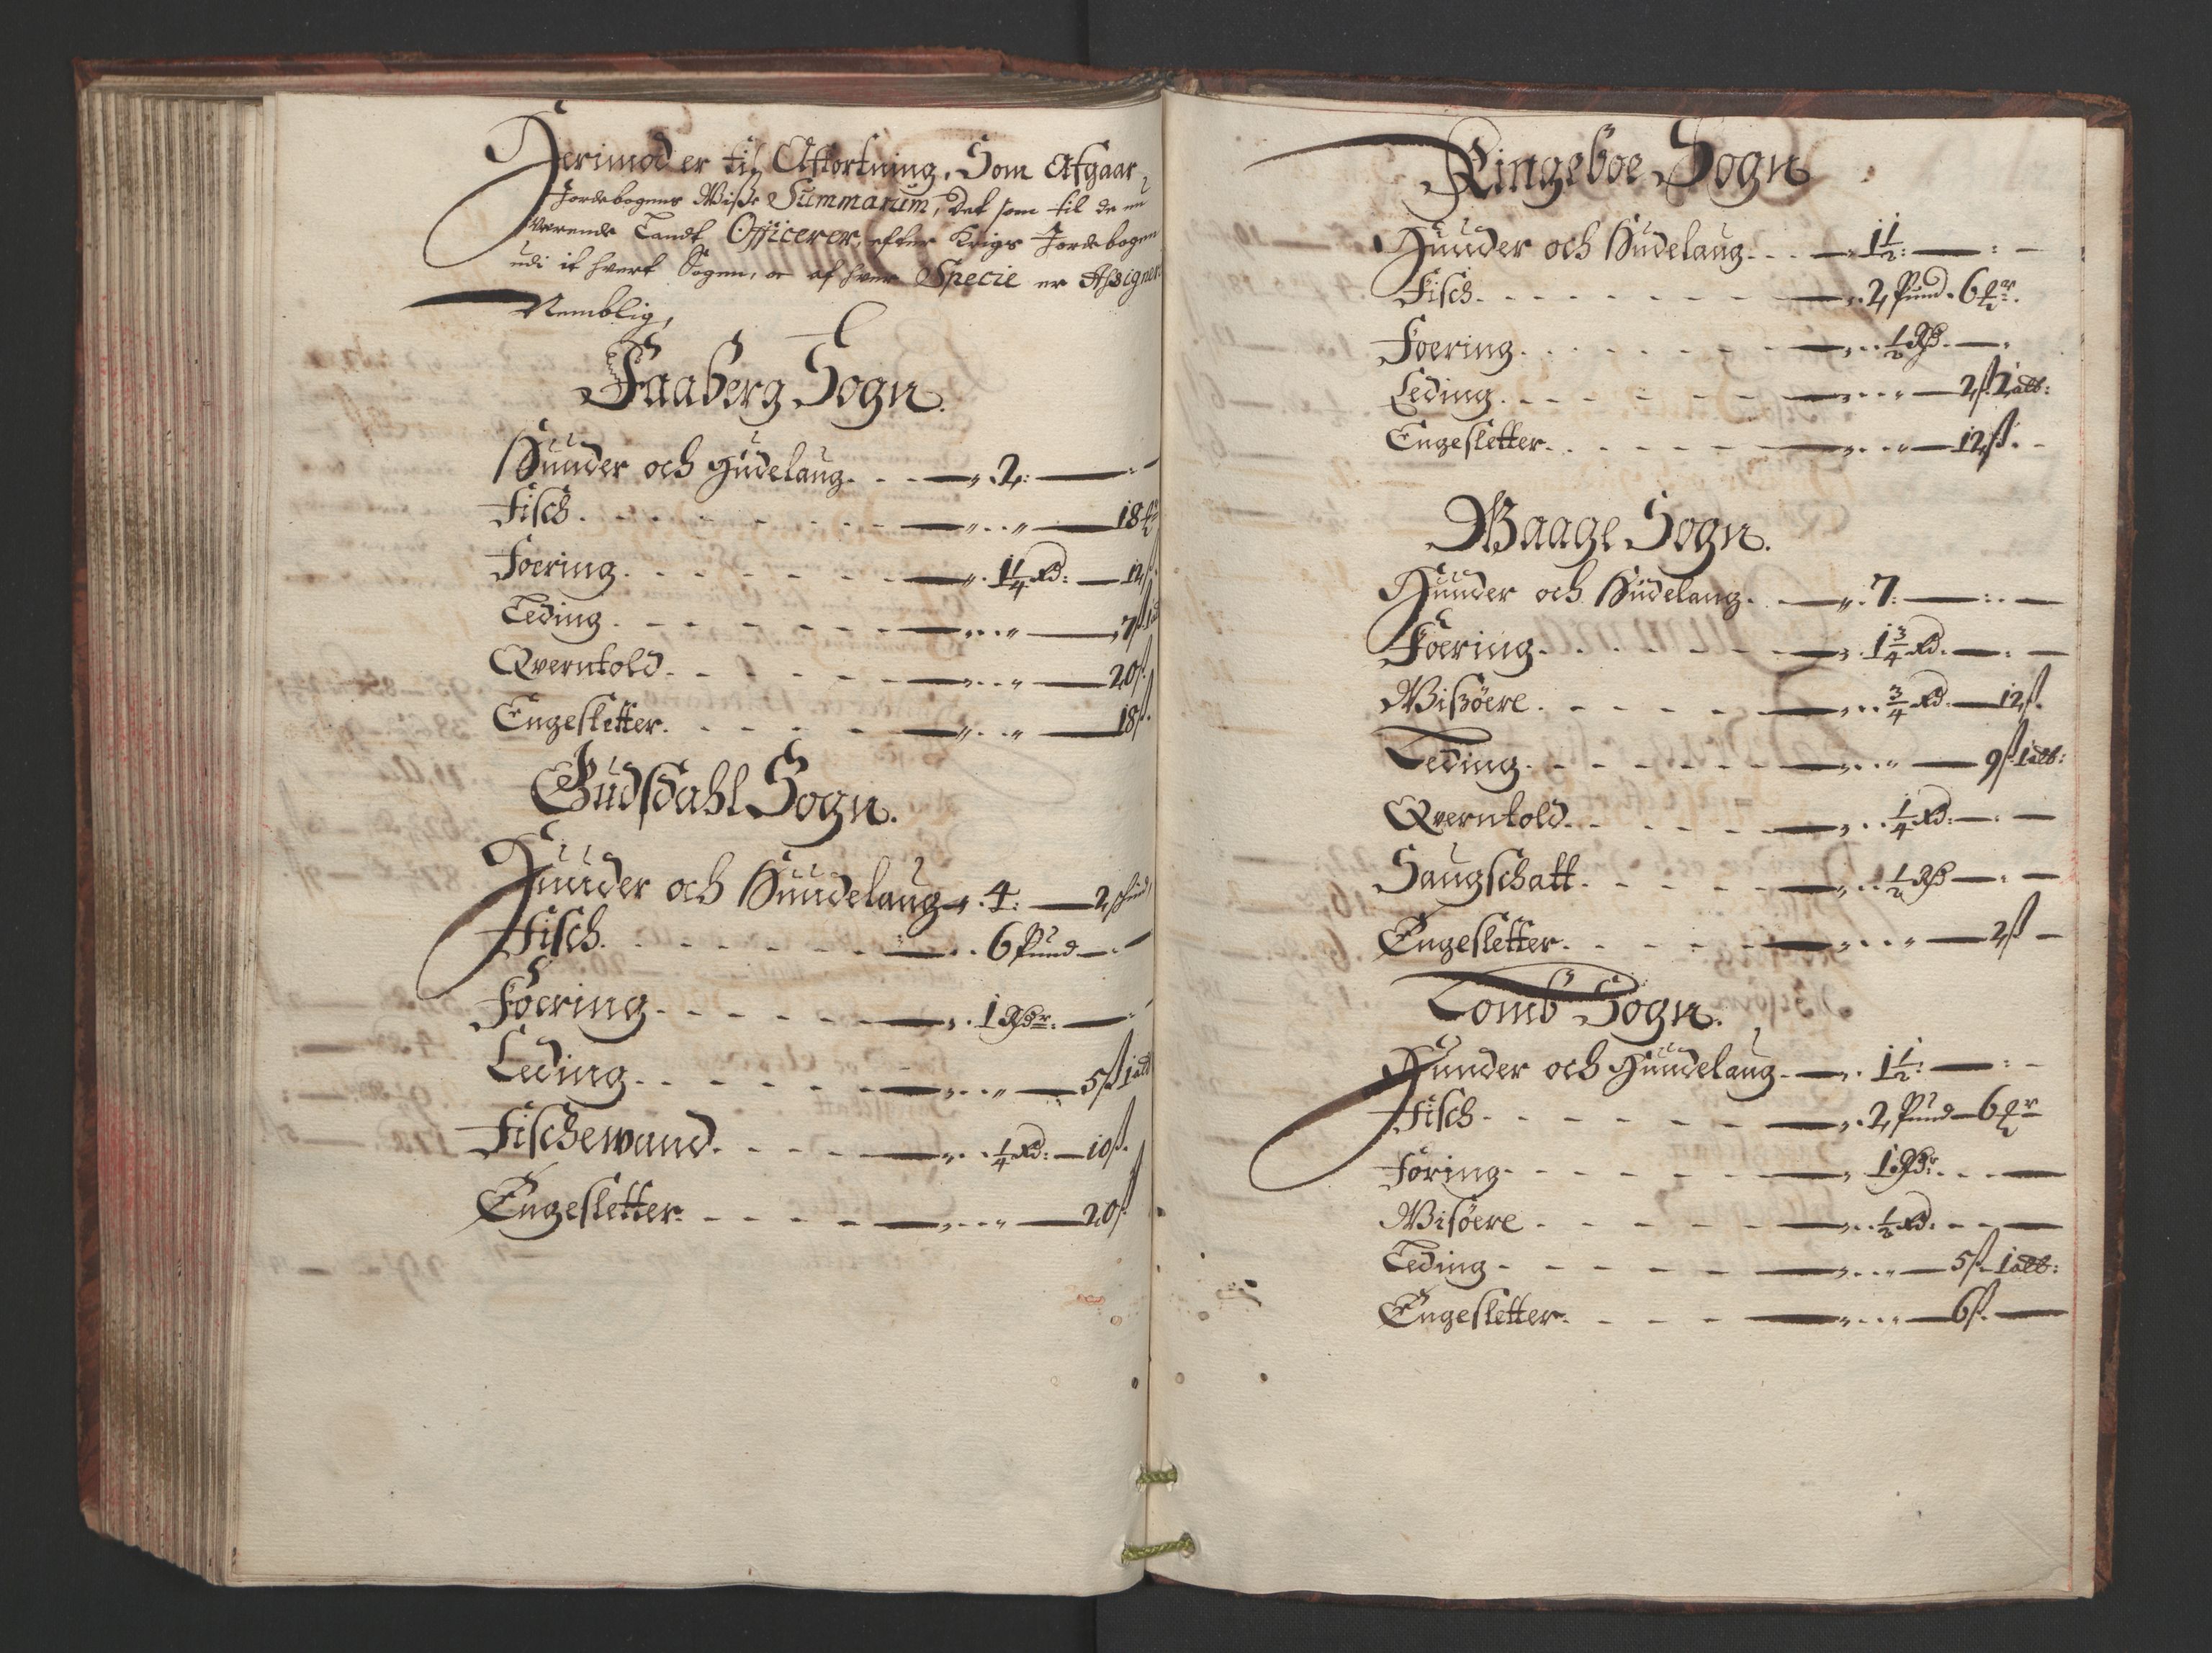 Herimod er til Afkortning, Som Afgaar
Jordebogens Wisse Summarum, Det som til de nu
werende Landt Officerer, efter Krigs Jordebogen
udi it hvert Sogen, oc af hver Specie er Assigner
Nemblig,
Faaberg Sogn.
Huuder och Hudelaug. - - - 2: -
Fisch. - - - 18
Foering. - - - 1 1/4 Rd: - 12ß.
Leding. - - - 7ß 1
Qverntold. - - - 20ß.
Engesletter. - - - 18ß.
Gudsdahl Sogn.
Huuder och Huudelaug - 4: - 2
Fisch. - - - 6 Pund -
Foering. - - - 1
Leding. - - - 5ß 1 alb
Fischewand. - - - 1/4 Rd: - 10ß.
Engesletter. - - - 20ß
Ringeboe Sogn
Huuder och Hudelaug. - - - 1 1/2: -
Fisch. - - - 2 Pund. 6
Foering. - - - 1/2
Leding. - - - 2ß 2 alb:
Engesletter. - - - 12ß. -
Waage Sogn.
Huuder och Hudelaug. - 7: -
Foering. - - - 1 3/4 Rd. -
Wißöere. - - - 3/4 Rd. - 12ß.
Leding. - - - 9ß 1 alb:
Qverntold. - - - 1/4 Rd: -
Saugschatt. - - - 1/2
Engesletter. - - - 2ß -
Lomb Sogn.
Hunder och Huudelaug. - 1 1/2: -
Fisch - - - 2 Pund - 6
Föring - - - 1
Wisöere - - - 1/2 Rd: - -
Leding - - - 5ß - 1 alb:
Engesletter. - - - 6ß. -